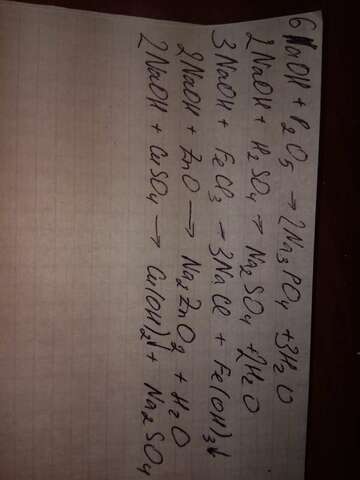 6 NaOH + P₂O₅ → 2Na₃PO₄ + 3H₂O
2 NaOH + H₂SO₄ → Na₂SO₄ + 2H₂O
3 NaOH + FeCl₃ → 3NaCl + Fe(OH)₃↓
2NaOH + ZnO → Na₂ZnO₂ + H₂O
2NaOH + CuSO₄ → Cu(OH)₂↓ + Na₂SO₄